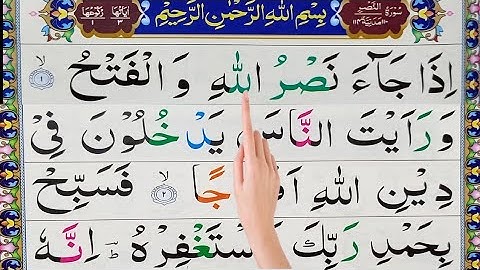 سُوْرَةُ النَّصْرِ
بِسْمِ اللهِ الرَّحْمٰنِ الرَّحِيْمِ
اٰيَاتُهَا ٣ رُكُوْعُهَا
اِذَا جَآءَ نَصْرُ اللّٰهِ وَ الْفَتْحُ ۙ ١
وَ رَاَيْتَ النَّاسَ يَدْخُلُوْنَ فِىْ
دِيْنِ اللّٰهِ جًا ۙ ٢ فَسَبِّحْ
بِحَمْدِ رَبِّكَ سْتَغْفِرْهُ ؕ اِنَّهٗ